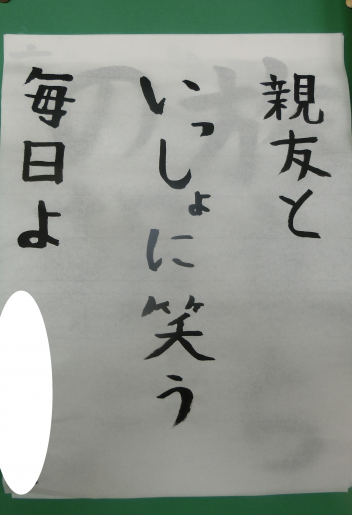 親友と
いっしょに笑う
毎日よ